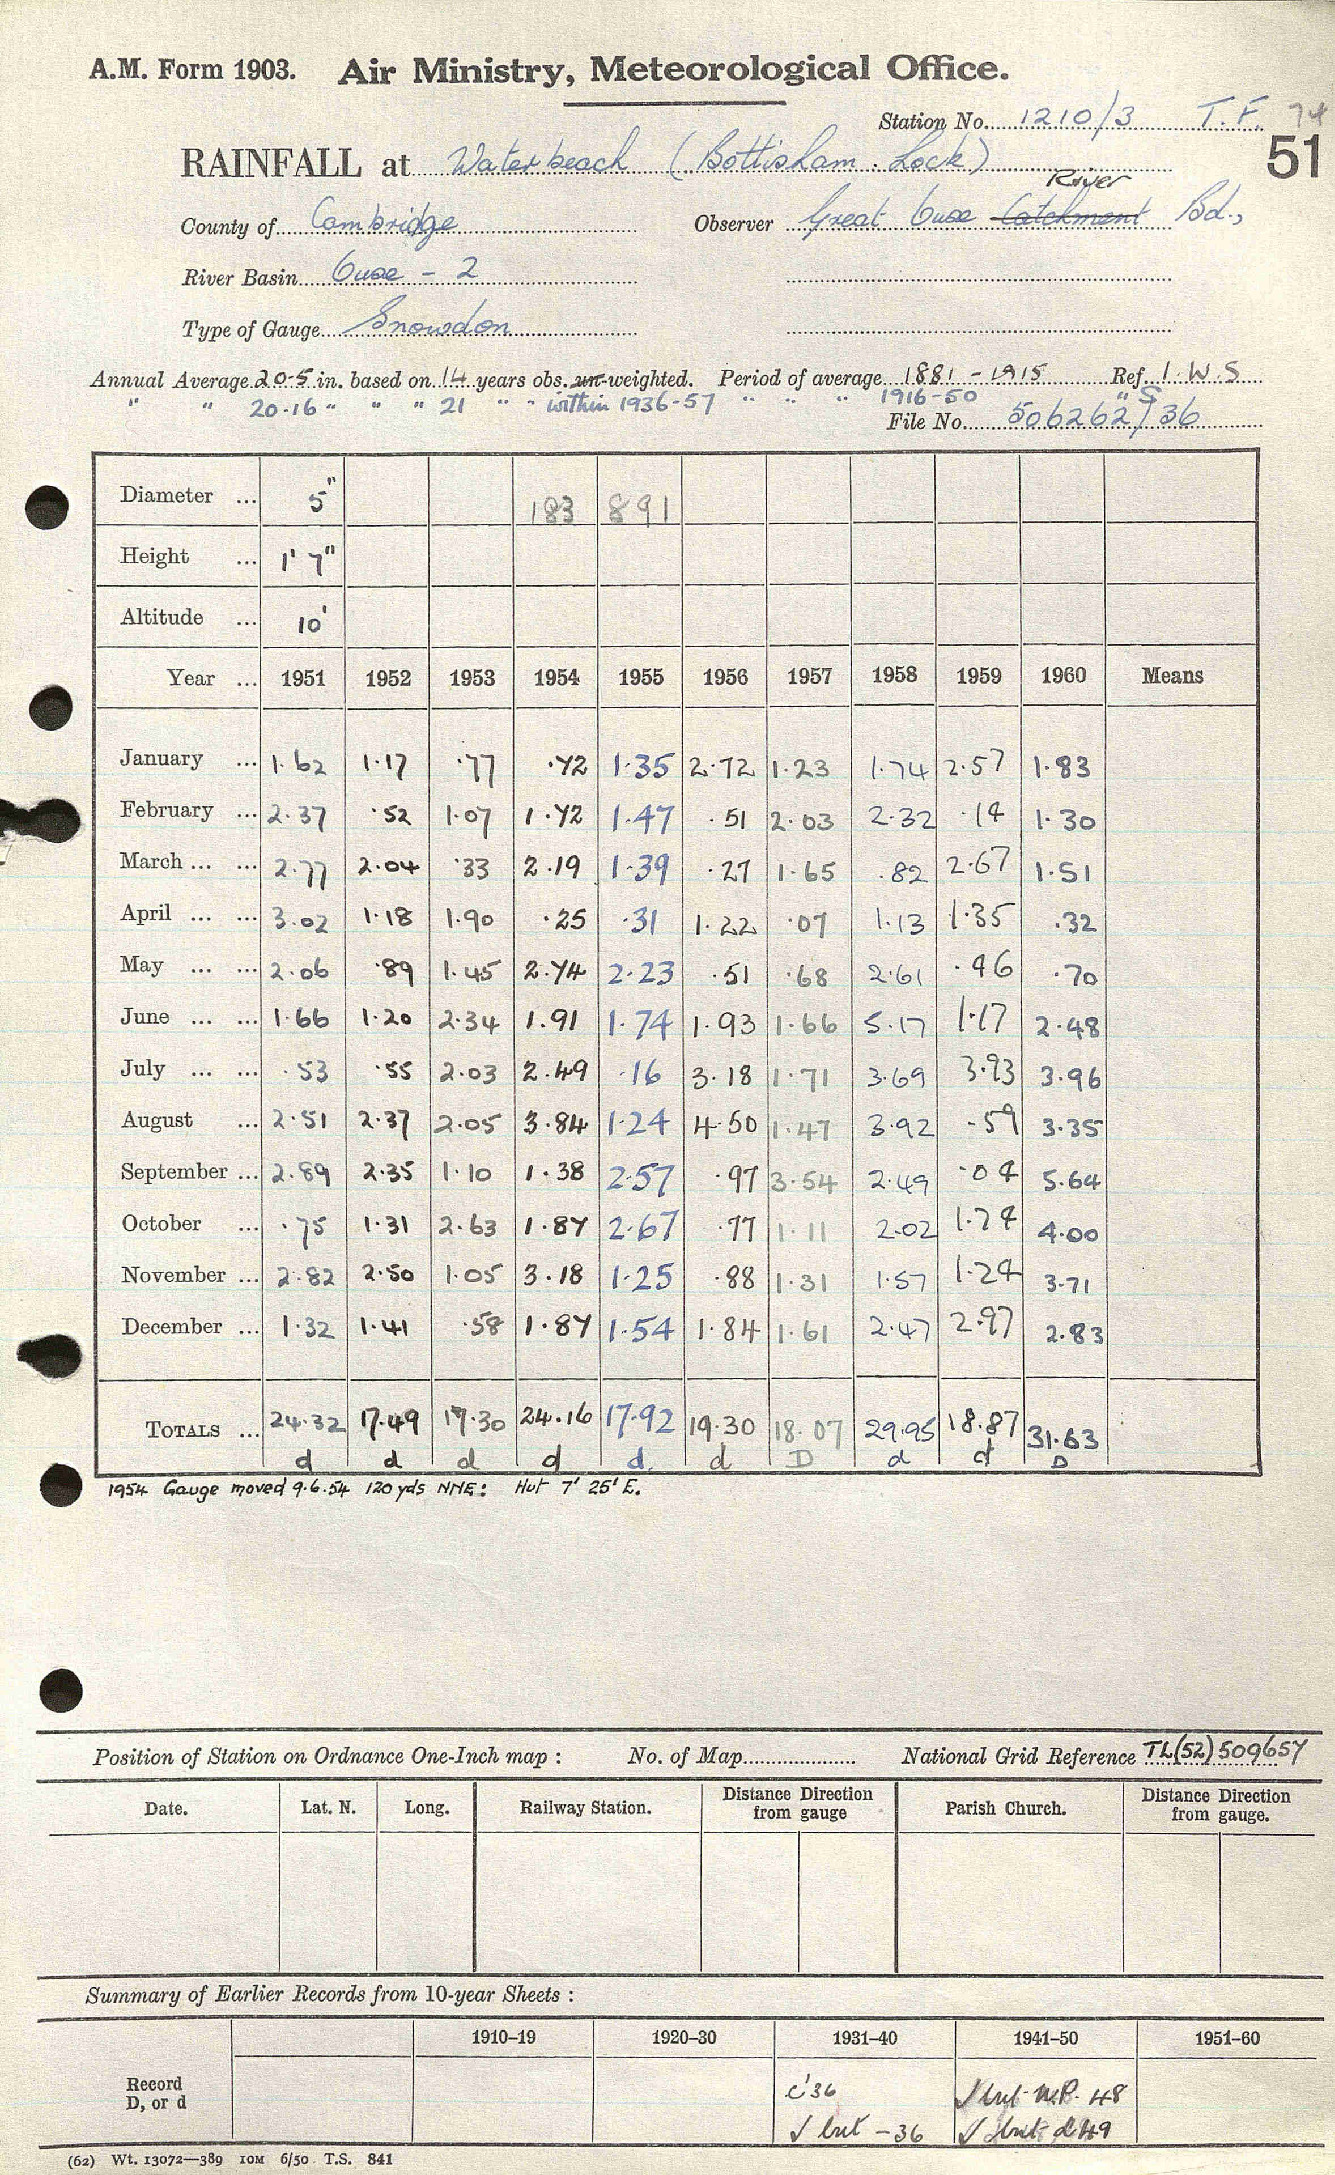 A.M. Form 1903. Air Ministry, Meteorological Office.
Station No. 1210/3 T.F. 74
51
RAINFALL at Waterbeach (Bottisham Lock)
River
County of Cambridge Observer Great Ouse Catchment Bd.,
River Basin Ouse - 2
Type of Gauge Snowdon
Annual Average 20.5 in. based on 14 years obs. un-weighted. Period of average 1881 - 1915 Ref. I.W.S
" " 20.16 " " " 21 " " within 1936-57 " " " 1916-50 " S
File No. 506262/36
Diameter ... 5" 183 891
Height ... 1' 7"
Altitude ... 10'
Year ... 1951 1952 1953 1954 1955 1956 1957 1958 1959 1960 Means
January ... 1.62 1.17 .77 .72 1.35 2.72 1.23 1.74 2.57 1.83
February ... 2.37 .52 1.07 1.72 1.47 .51 2.03 2.32 .14 1.30
March ... ... 2.77 2.04 .33 2.19 1.39 .27 1.65 .82 2.67 1.51
April ... ... 3.02 1.18 1.90 .25 .31 1.22 .07 1.13 1.35 .32
May ... ... 2.06 .89 1.45 2.74 2.23 .51 .68 2.61 .96 .70
June ... ... 1.66 1.20 2.34 1.91 1.74 1.93 1.66 5.17 1.17 2.48
July ... ... .53 .55 2.03 2.49 .16 3.18 1.71 3.69 3.93 3.96
August ... 2.51 2.37 2.05 3.84 1.24 4.50 1.47 3.92 .59 3.35
September ... 2.89 2.35 1.10 1.38 2.57 .97 3.54 2.49 .04 5.64
October ... .75 1.31 2.63 1.87 2.67 .77 1.11 2.02 1.24 4.00
November ... 2.82 2.50 1.05 3.18 1.25 .88 1.31 1.57 1.24 3.71
December ... 1.32 1.41 .58 1.87 1.54 1.84 1.61 2.47 2.97 2.83
TOTALS ... 24.32 17.49 17.30 24.16 17.92 19.30 18.07 29.95 18.87 31.63
d d d d d. d D d d D
1954 Gauge moved 9.6.54 120 yds NNE: Hut 7' 25' E.
Position of Station on Ordnance One-Inch map : No. of Map National Grid Reference TL(52)509657
Date. Lat. N. Long. Railway Station. Distance Direction from gauge Parish Church. Distance Direction from gauge.
Summary of Earlier Records from 10-year Sheets :
1910–19 1920–30 1931–40 1941–50 1951–60
Record D, or d
c'36 √ but N.P. 48
√ but - 36 √ but d 49
(62) Wt. 13072—389 10M 6/50 T.S. 841